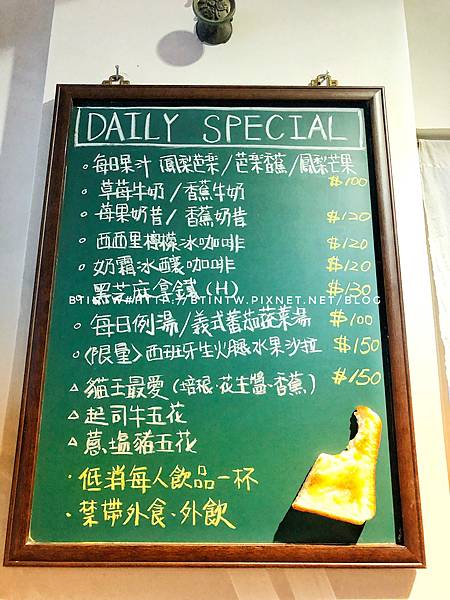 DAILY SPECIAL
。每日果汁 鳳梨芭樂/芭樂香蕉/鳳梨芒果
$100
。草莓牛奶/香蕉牛奶
。莓果奶昔/香蕉奶昔 $120
。西西里檸檬冰咖啡 $120
。奶霜冰釀咖啡 $120
。黑芝麻拿鐵(H) $130
BTINTW.PIXNET.NET/BLOG
。每日例湯/義式蕃茄蔬菜湯 $100
。〈限量〉西班牙生火腿水果沙拉 $150
△貓王最愛(培根、花生醬、香蕉) $150
△起司牛五花
△蔥塩豬五花
·低消每人飲品一杯
·禁帶外食、外飲